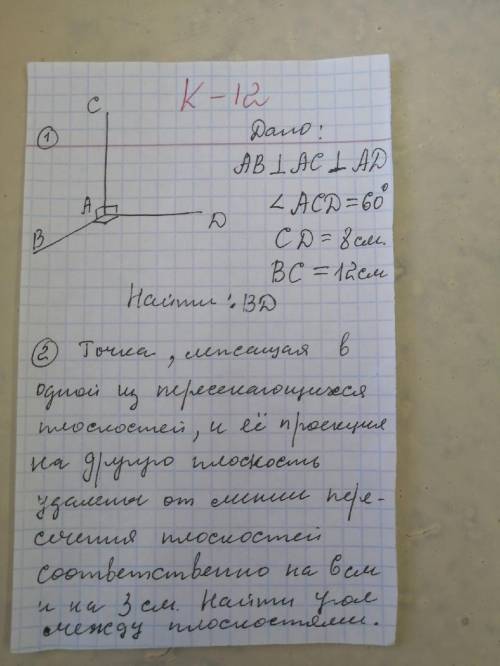 К-12
C
①
Дано:
AB⊥AC⊥AD
∠ACD=60°
CD=8см.
BC=12см
A
D
B
Найти: BD
② Точка, лежащая в
одной из пересекающихся
плоскостей, и её проекция
на другую плоскость
удалены от линии пере-
сечения плоскостей
соответственно на 6см
и на 3см. Найти угол
между плоскостями.